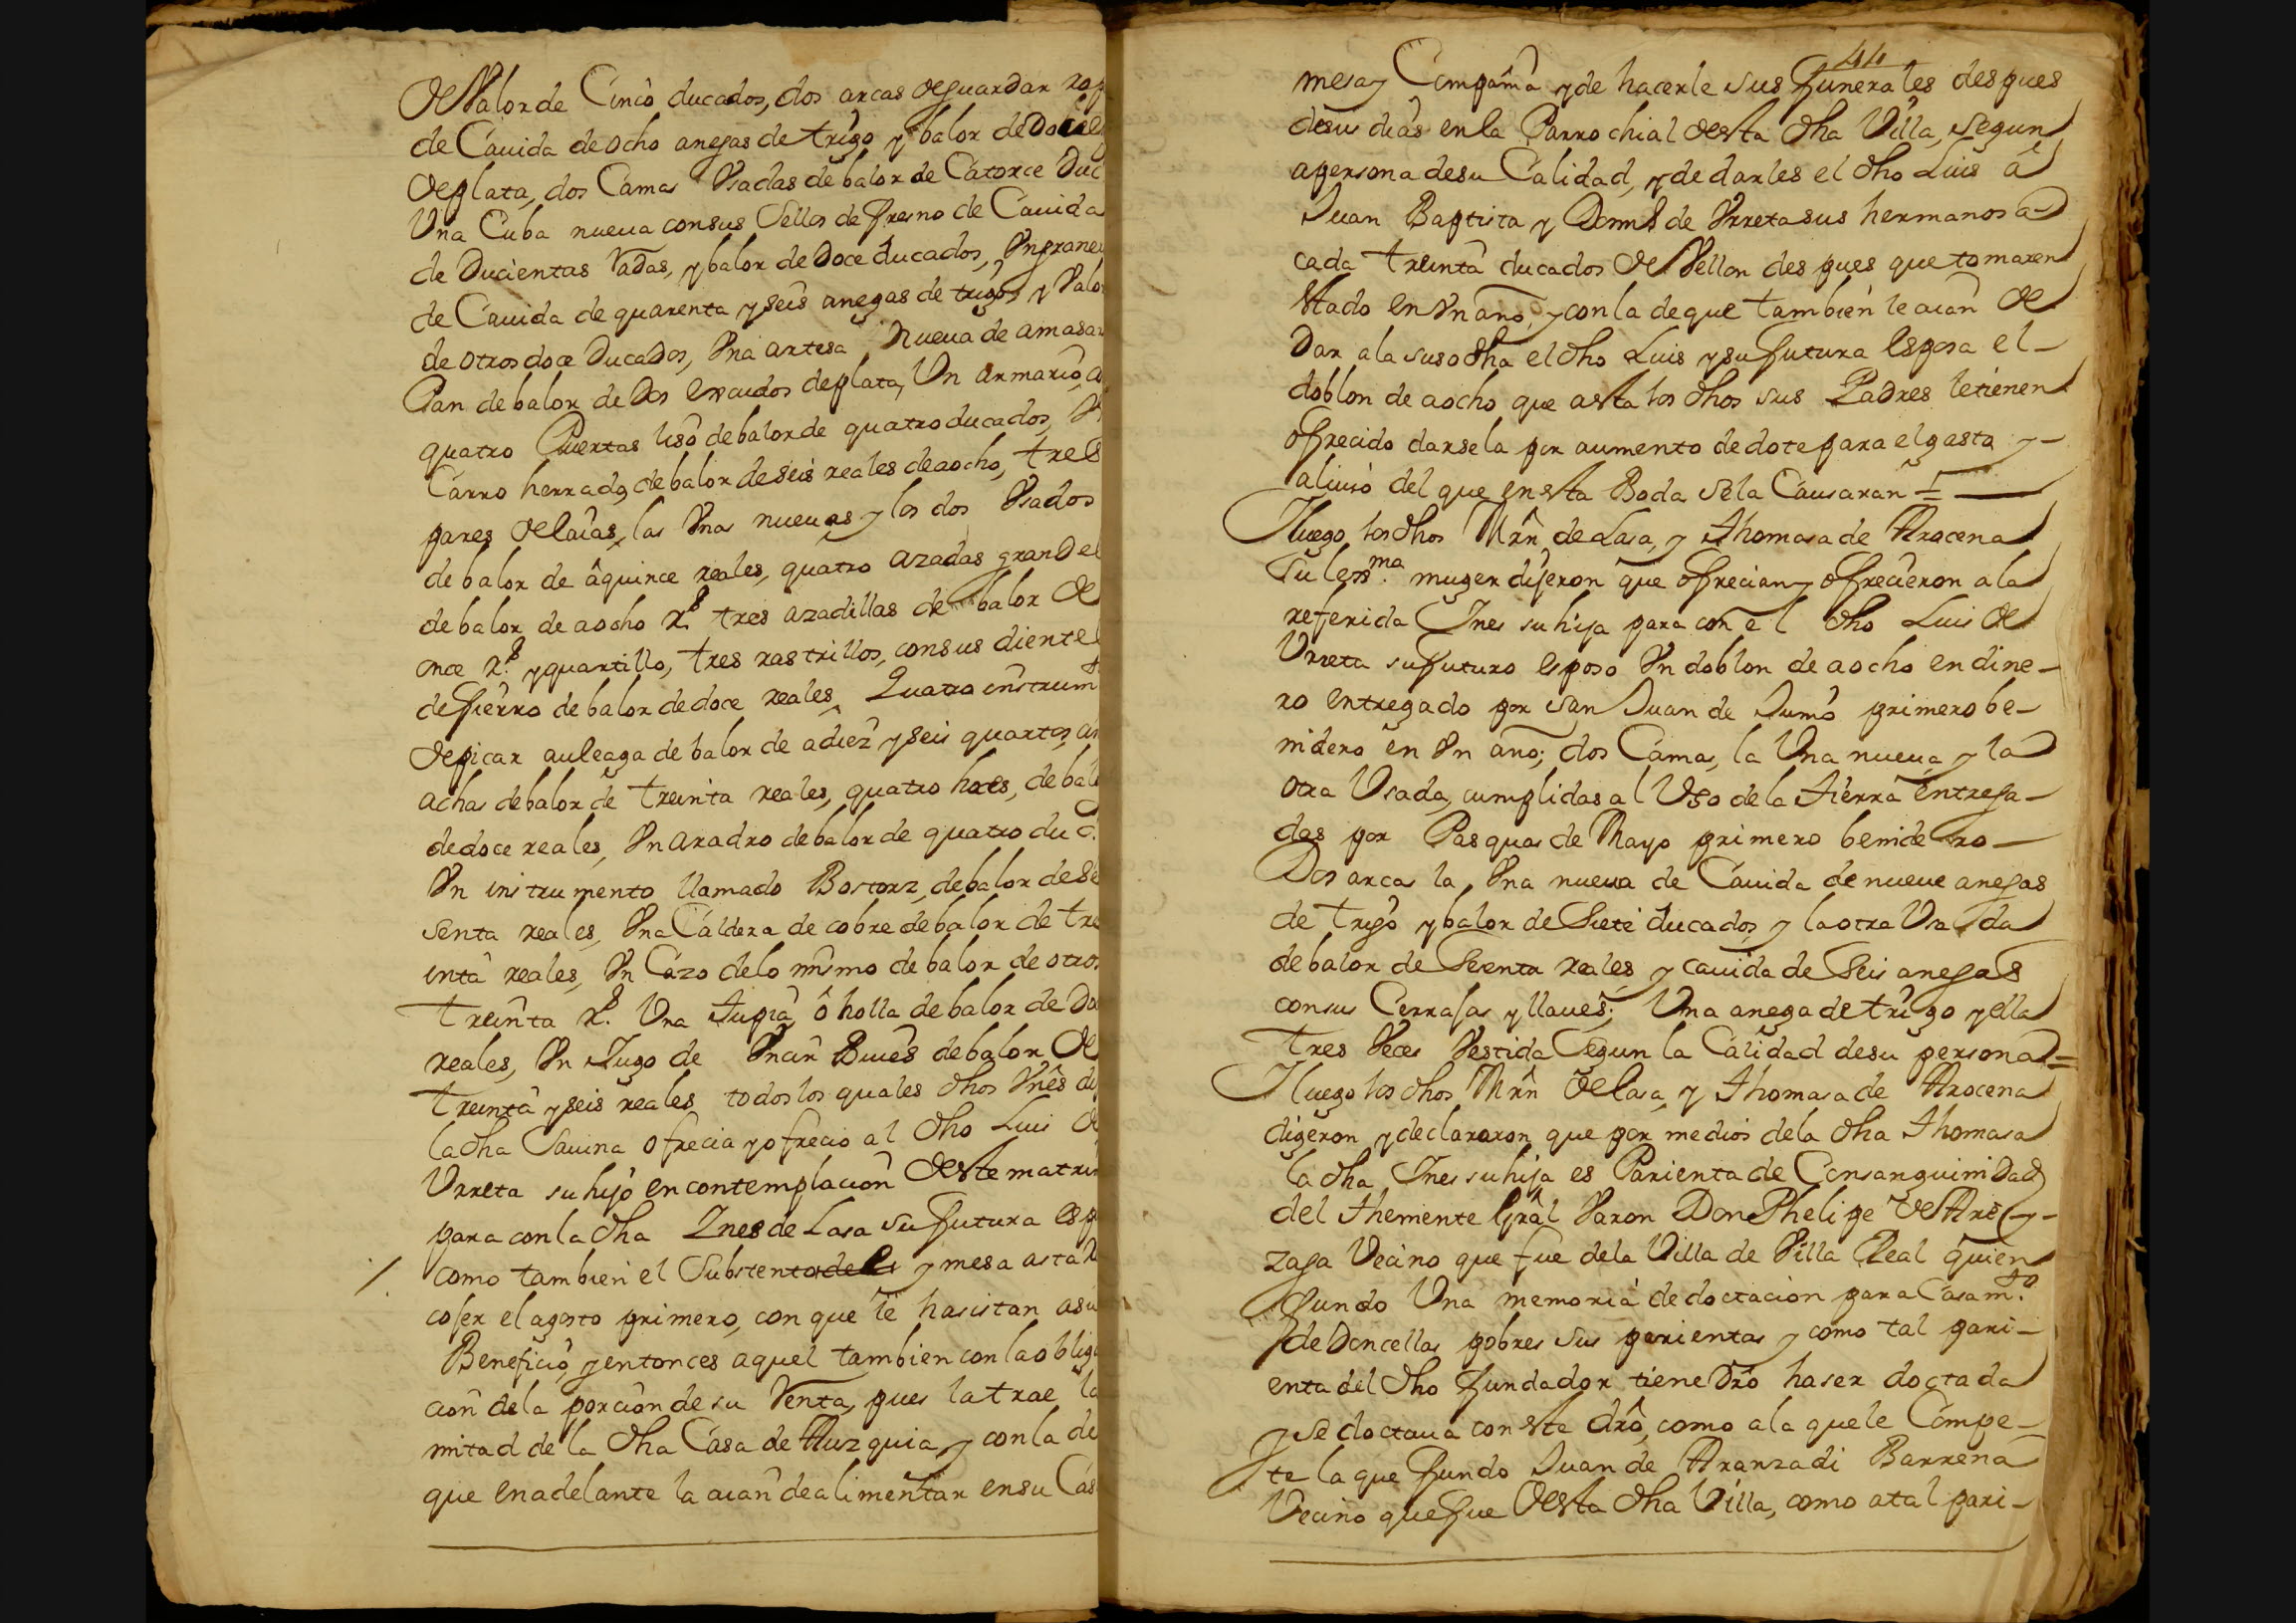 de Valor de Cinco ducados, dos arcas de guardar rop
de Cauida de ocho anegas de trigo y balor de Doce
de plata, dos Camas Vsadas de balor de Catorce Duc
Vna Cuba nueua con sus Sellos de fresno de Cauida
de Ducientas Vadas, y balor de Doce ducados, Vn grane
de Cauida de quarenta y seis anegas de trigo y Valo
de otros doce Ducados, Vna artesa Nueua de amasar
Pan de balor de Dos Escudos de plata, Vn armario, a
quatro Puertas liso de balor de quatro ducados, V
Carro herrado, de balor de seis reales de aocho, tres
pares de laias, las Vnas nueuas y los dos Vsados
de balor de â quince reales, quatro azadas grandes
de balor de aocho r.s tres azadillas de balor de
once r.s y quartillo, tres rastrillos, con sus dientes
de fierro de balor de doce reales, Quatro instrum.t
de picar auleaga de balor de a diez y seis quartos,
achas de balor de treinta reales, quatro hoces, de bal
de doce reales, Vn aradro de balor de quatro du c.
Vn instrumento llamado Bostorz, de balor de se
senta reales, Vna Caldera de cobre de balor de tre
inta reales, Vn Cazo de lo mismo de balor de otros
treinta r.s Vna Tupia, ô holla de balor de Do
reales, Vn Jugo de Vncir Bueês de balor de
treinta y seis reales todos los quales dhos Vnês di
la dha Sauina ofrecia y ofrecio al dho Luis de
Vrreta su hijo en contemplacion de este matrim
para con la dha Ines de Lasa su futura esp
/. como tambien el Substento de el y mesa asta
cojer el agosto primero, con que le hasistan a su
Beneficio, y entonces aquel tambien con la obliga
cion de la porcion de su Venta, pues la trae la
mitad de la dha Casa de Auzquia, y con la de
que en adelante la aian de alimentar en su Cas
44
mesa y Compañia y de hacerle sus funerales despues
de sus dias en la Parrochial de esta dha Villa, segun
a persona de su Calidad, y de darles el dho Luis a
Juan Baptista y Domns de Vrreta sus hermanos a
cada treinta ducados de Vellon despues que tomaren
Estado en Vn año, y con la de que tambien le aian de
Dar a la suso dha el dho Luis y su futura Esposa el-
doblon de aocho que asta los dhos sus Padres le tienen
ofrecido darsela por aumento de dote para el gasto y-
aliuio del que en esta Boda se la Causaran =
Y luego los dhos Mrn de Lasa, y Thomasa de Arocena
su lexm.ma muger dijeron que ofrecian y ofrecieron a la
referida Ines su hija para con el dho Luis de
Vrreta su futuro esposo Vn doblon de aocho en dine-
ro entregado por San Juan de Junio primero be-
nidero en Vn año; dos Camas, la Vna nueua, y la
otra Vsada, cumplidas al Vso de la tierra entrega-
das por Pasquas de Mayo primero benidero-
Dos arcas la Vna nueua de Cauida de nueue anegas
de trigo y balor de Siete ducados, y la otra Vsada
de balor de Sesenta reales, y cauida de Seis anegas
con sus Cerrajas y llaues; Vna anega de trigo y ella
tres Veces Vestida Segun la Calidad de su persona=
Y luego los dhos Mrn de Lasa, y Thomasa de Arocena
digeron y declararon que por medios de la dha Thomasa
la dha Ines su hija es Parienta de Consanguinidad
del Theniente Grâl Varon Don Phelipe de Arei-
zaga Vecino que fue de la Villa de Villa Real quien
fundo Vna memoria de doctacion para Casam.to
de Doncellas pobres sus parientas y como tal pari-
enta del dho fundador tiene Drô ha ser doctada
y se doctaua con este drô, como a la que le Compe-
te la que fundo Juan de Aranzadi Barrena
Vecino que fue de esta dha Villa, como a tal pari-